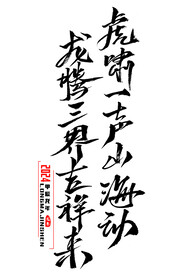 虎啸一声山海动
龙腾三界吉祥来
2024甲辰龙年
LONGMAJINGSHEN